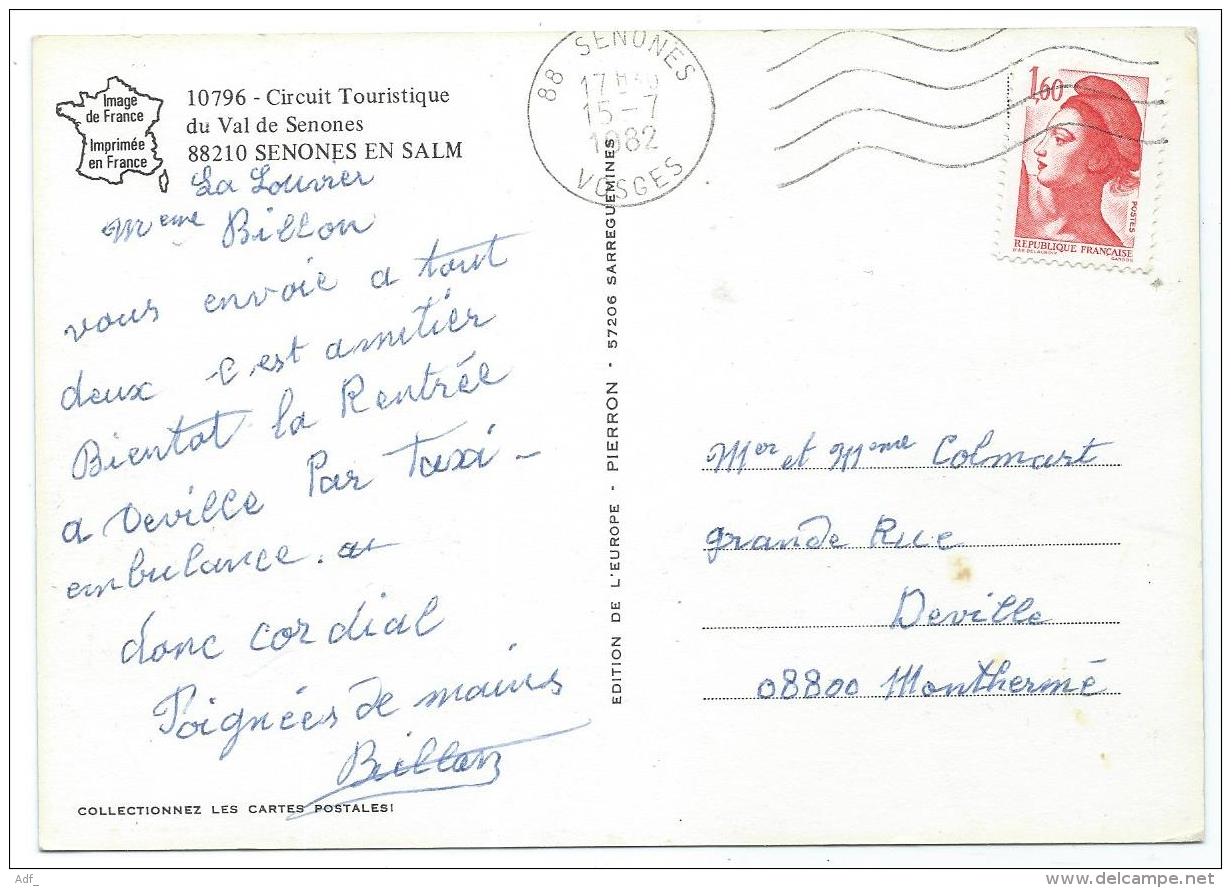 Image
de France
Imprimée
en France
10796 - Circuit Touristique
du Val de Senones
88210 SENONES EN SALM
La Louvier
Meme Billon
vous envoie a tout
deux c'est amitiér
Bientot la Rentrée
a Deville Par Taxi -
embulance.
donc cordial
Poignées de mains
Billon
COLLECTIONNEZ LES CARTES POSTALES!
EDITION DE L'EUROPE - PIERRON - 57206 SARREGUEMINES
88 SENONES
17H30
15-7
1982
VOSGES
1,60
POSTES
REPUBLIQUE FRANÇAISE
D'AP. DELACROIX GANDON
Mer et Meme Colmart
grande Rue
Deville
08800 Monthermé
Adf_
www.delcampe.net